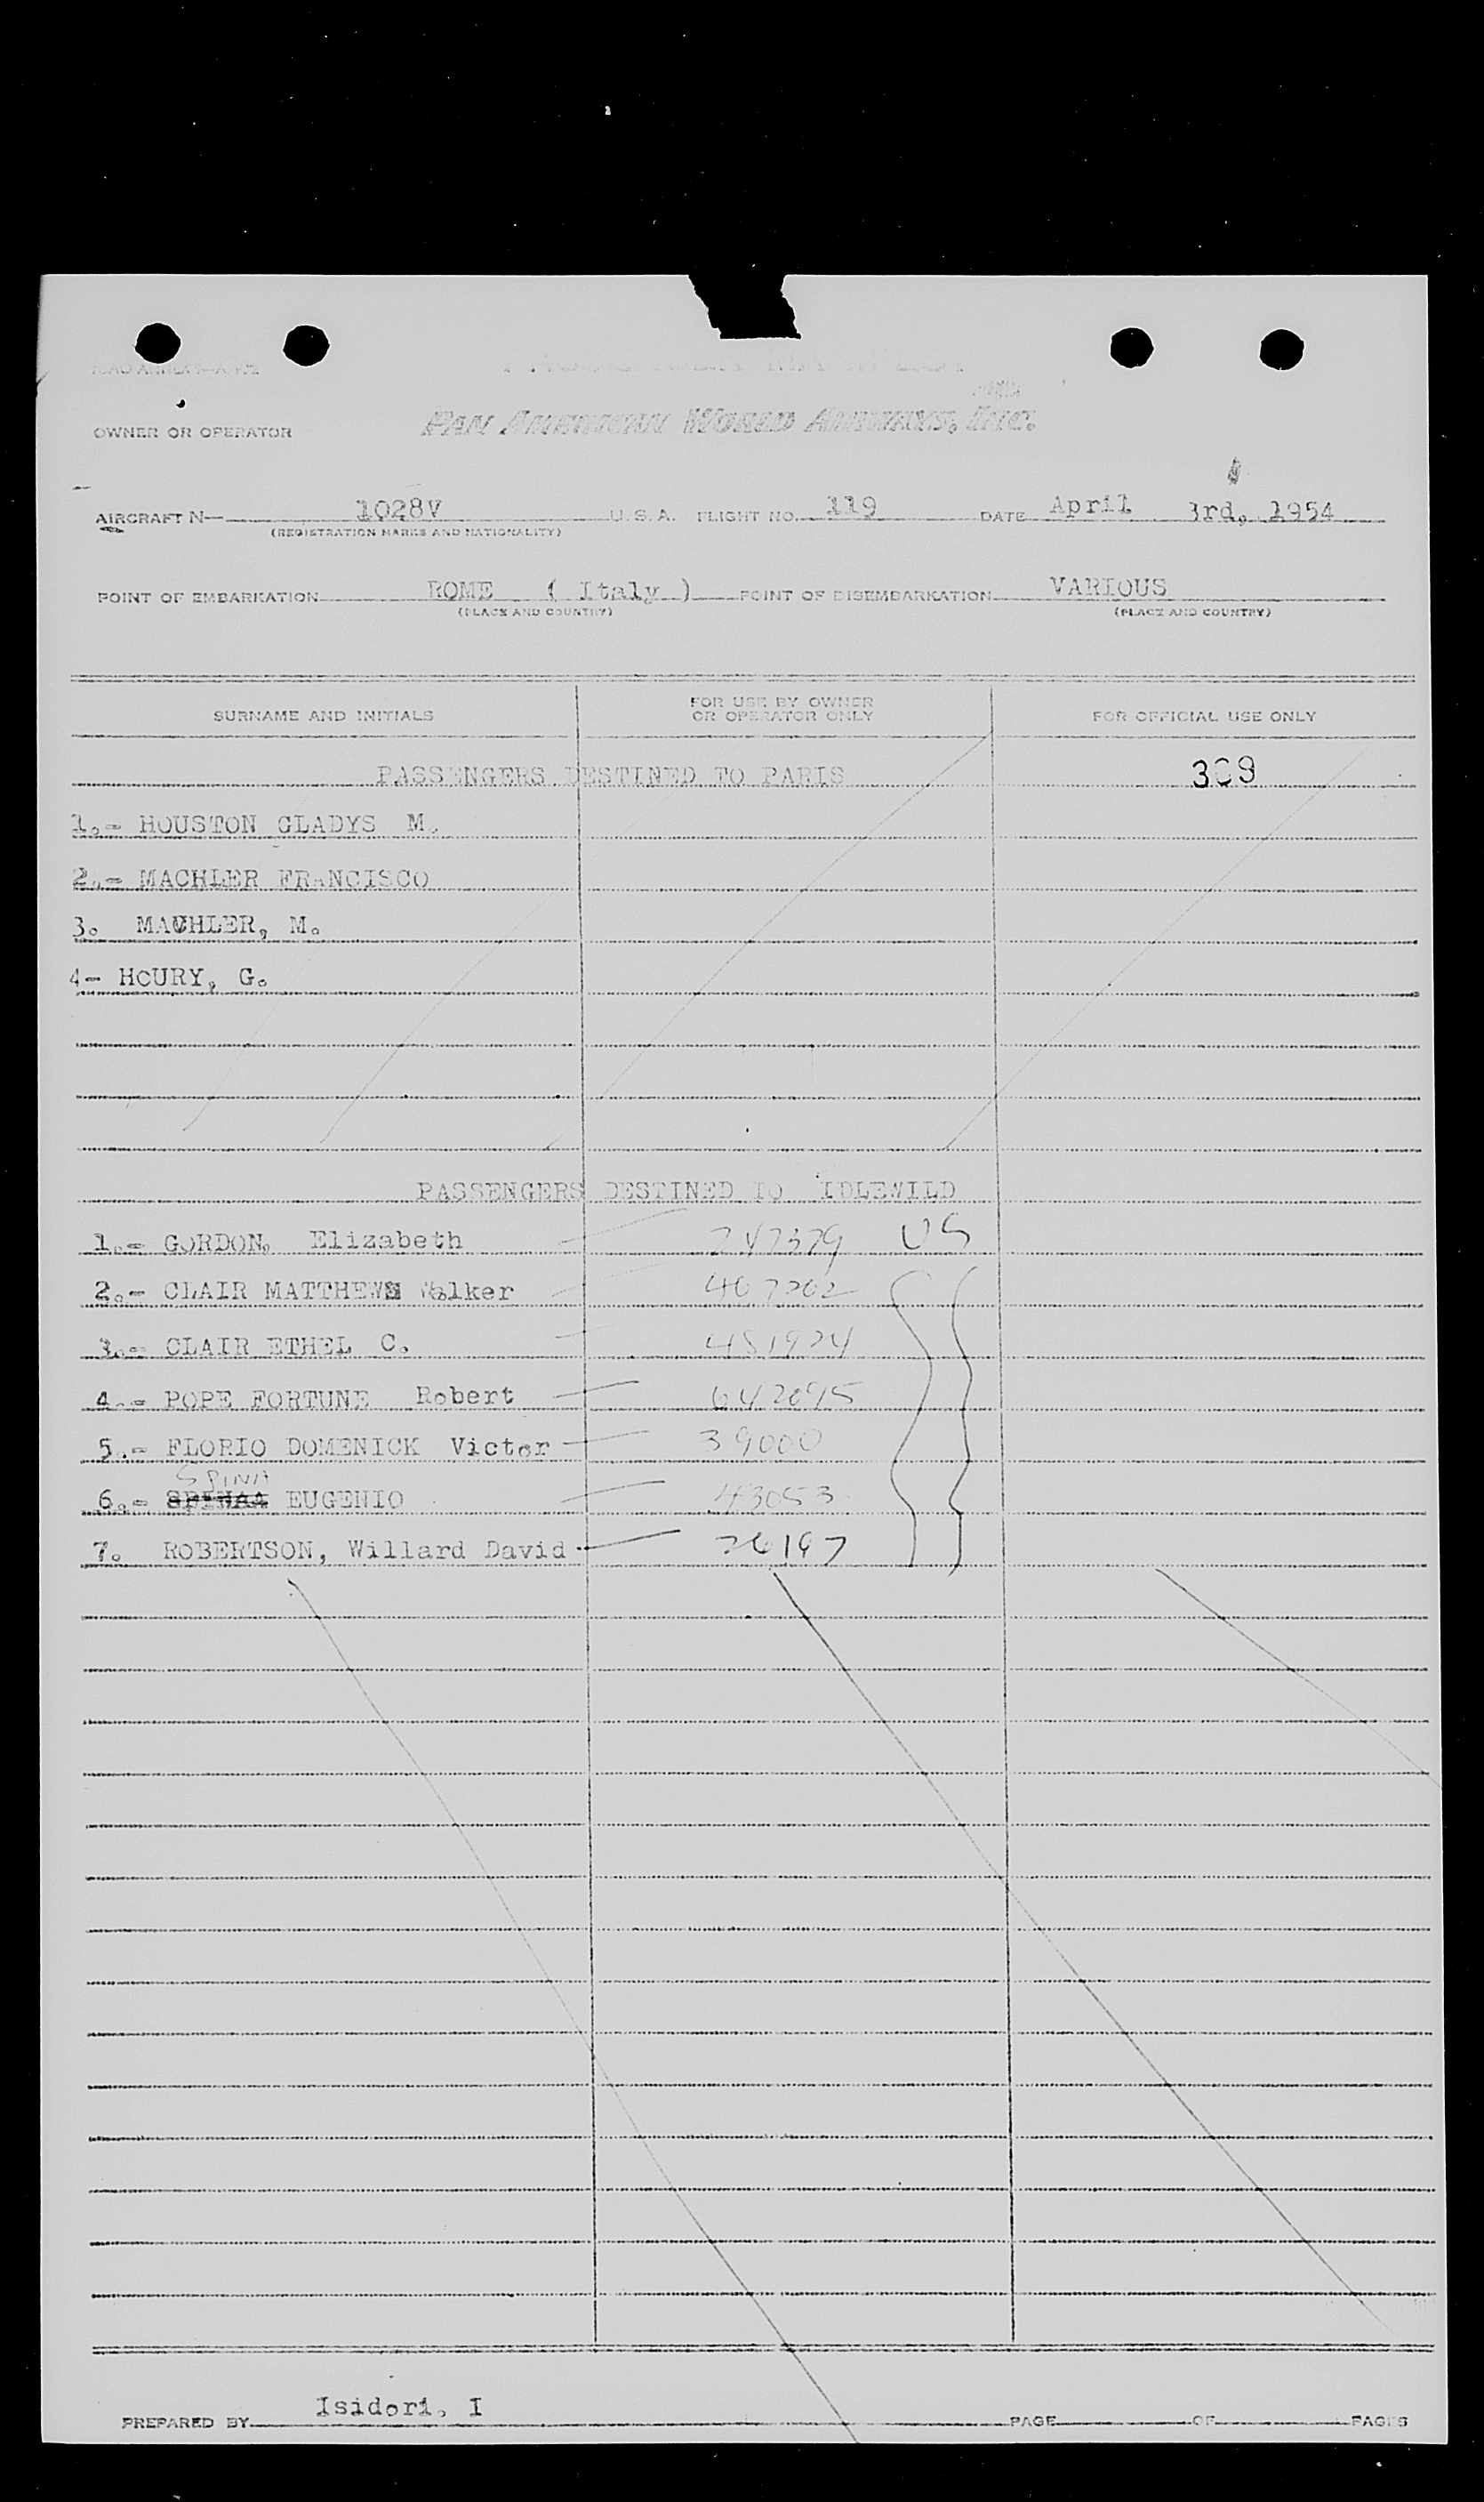 OWNER OR OPERATOR PAN AMERICAN WORLD AIRWAYS, INC.
AIRCRAFT N— 1028V U. S. A. FLIGHT NO. 119 DATE April 3rd, 1954
(REGISTRATION MARKS AND NATIONALITY)
POINT OF EMBARKATION ROME ( Italy ) POINT OF DISEMBARKATION VARIOUS
(PLACE AND COUNTRY) (PLACE AND COUNTRY)
SURNAME AND INITIALS FOR USE BY OWNER OR OPERATOR ONLY FOR OFFICIAL USE ONLY
PASSENGERS DESTINED TO PARIS 309
1.- HOUSTON GLADYS M.
2.- MACHLER FRANCISCO
3. MACHLER, M.
4- HOURY, G.
PASSENGERS DESTINED TO IDLEWILD
1.- GORDON. Elizabeth 247379 US
2.- CLAIR MATTHEW Walker
3.- CLAIR ETHEL C. 481924
4.- POPE FORTUNE Robert
5.- FLORIO DOMENICK Victor 39000
SPINA
6.- EUGENIO 43053
7. ROBERTSON, Willard David 26197
PREPARED BY Isidori, I PAGE OF PAGES